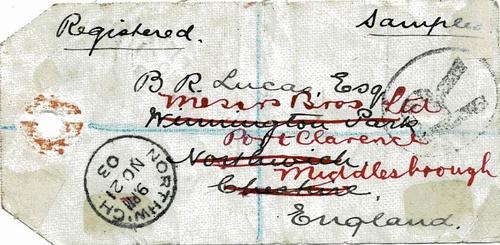 Registered.
Sample
B. R. Lucas, Esq
Messrs Bros Ltd
Winnington Park
Port Clarence
Northwich
Middlesbrough
Cheshire
England.
NORTHWICH
9 PM
NO 21
03